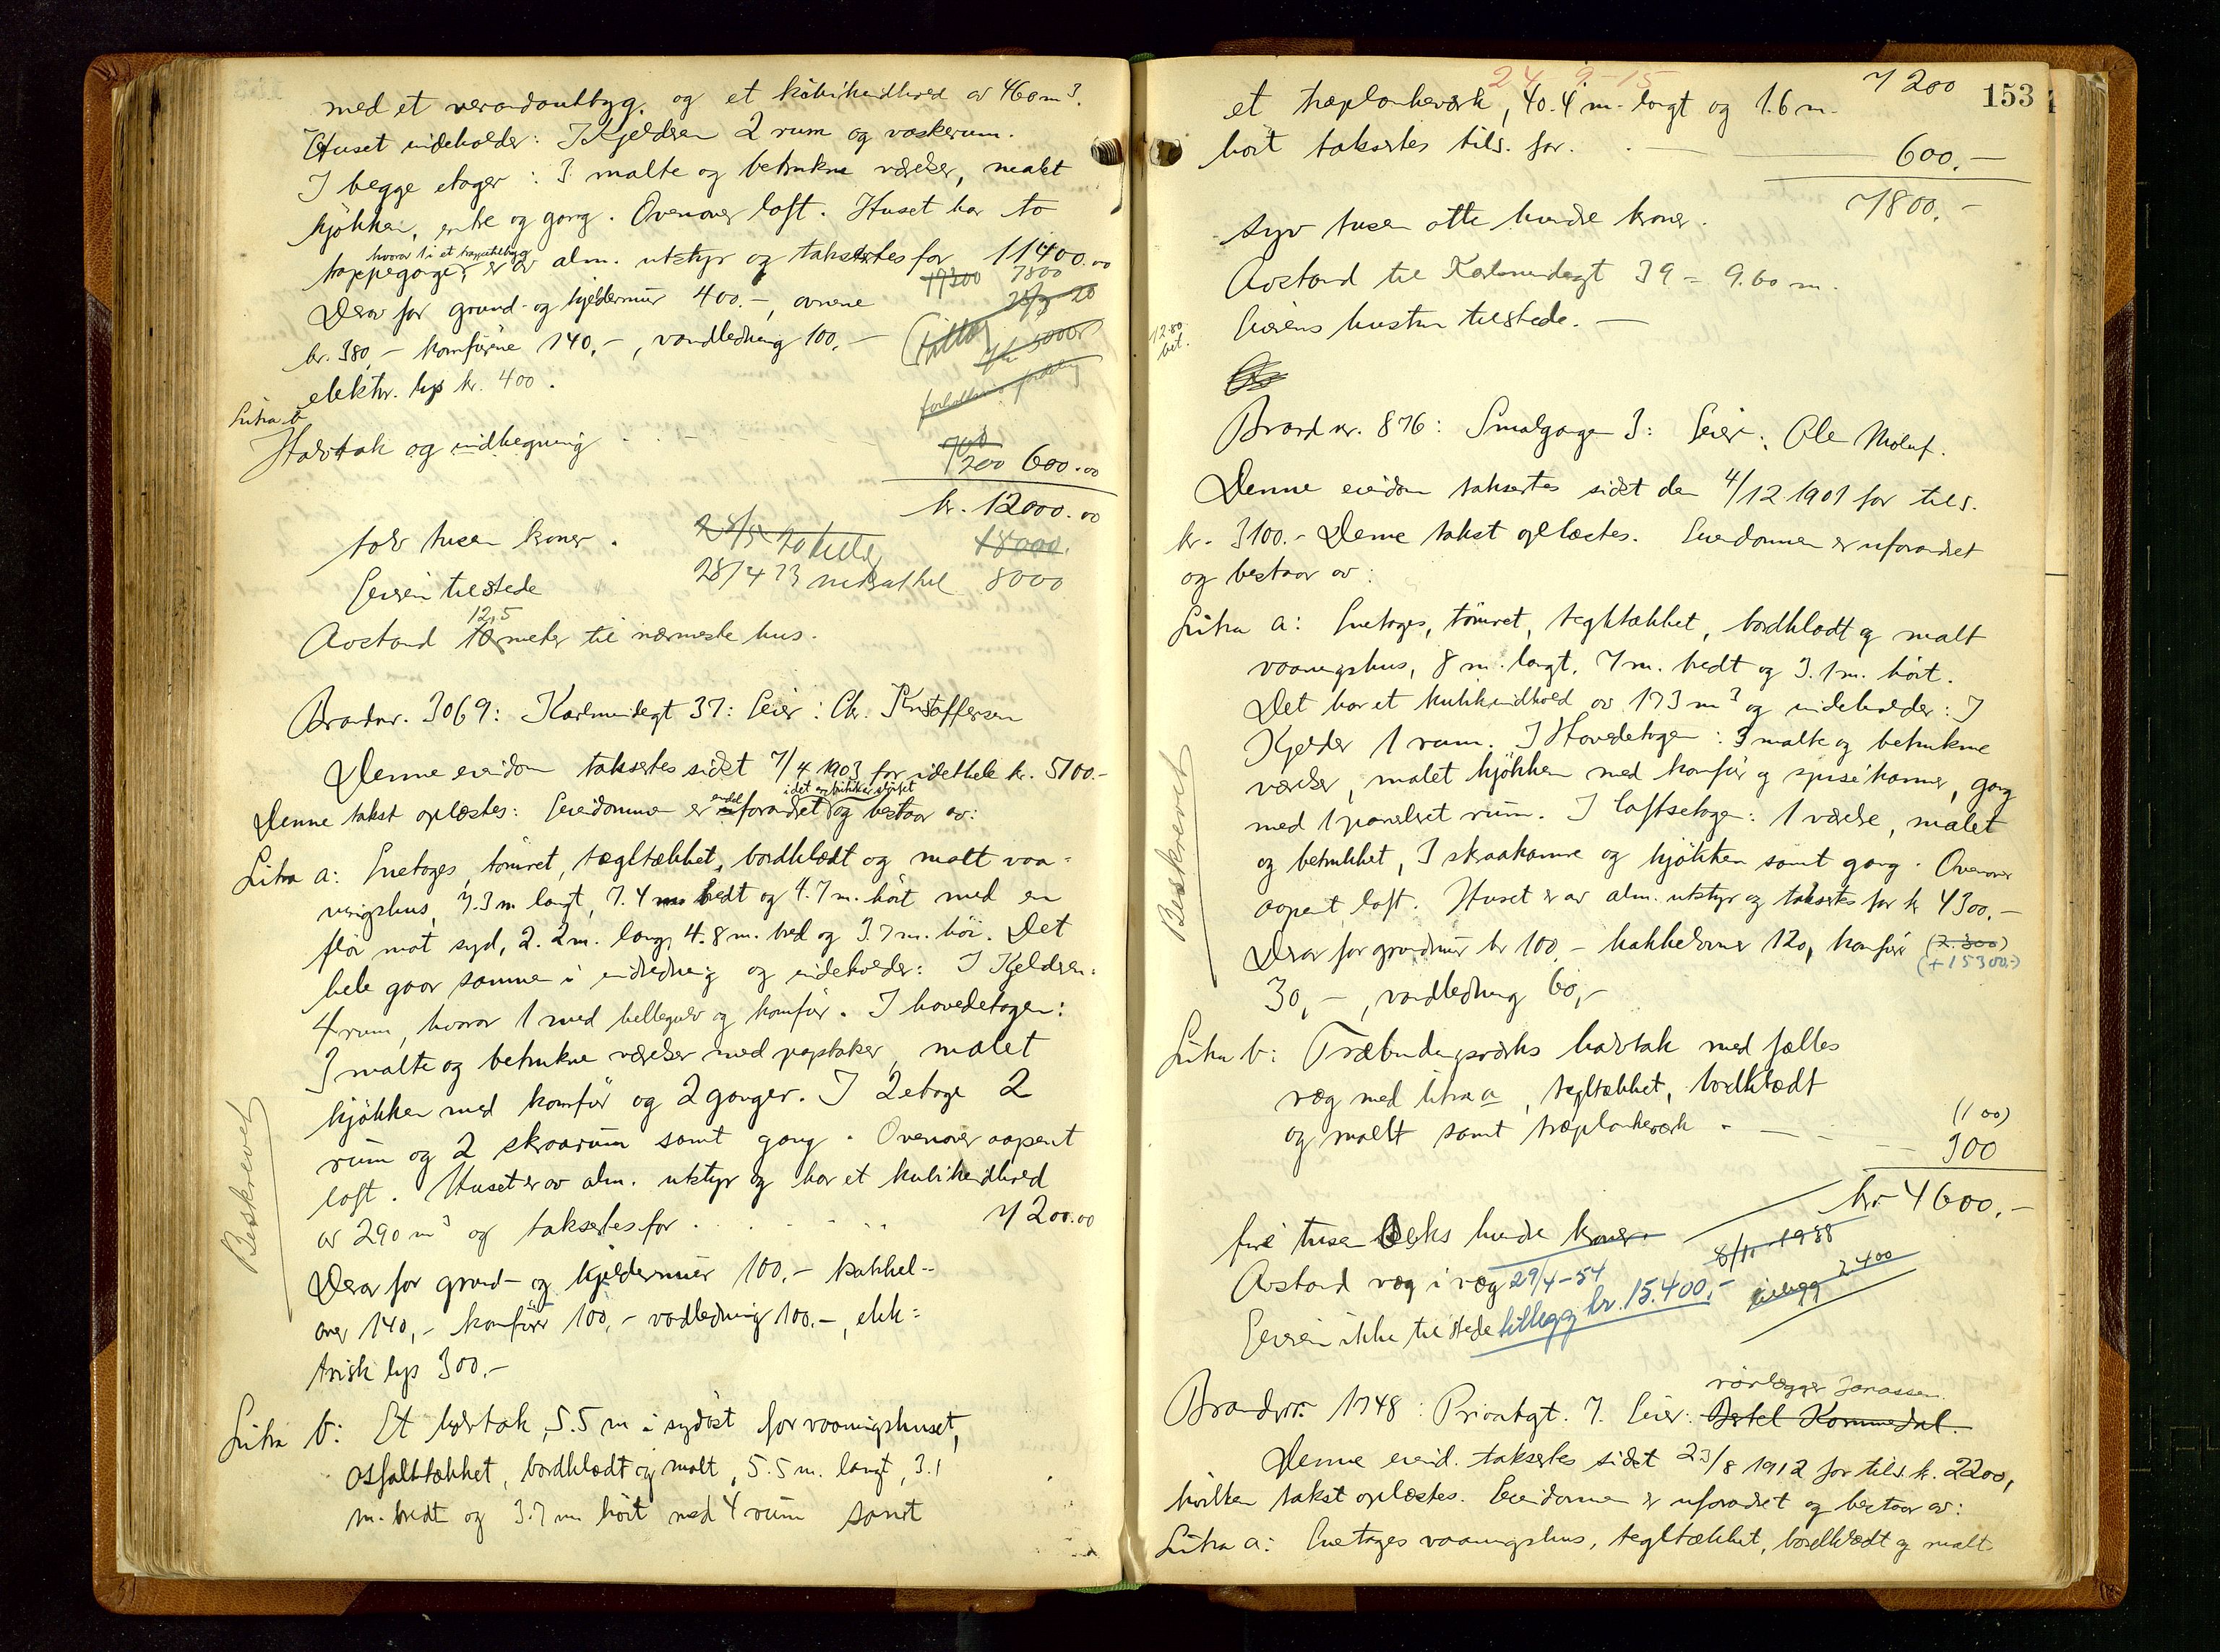 med et verandautbyg. og et kubikindhold av 460 m³.
Huset indeholder: I Kjelderen 2 rum og vaskerum.
I begge etager: 3 malte og betrukne værelser, malet
kjøkken, entre og gang. Ovenover loft. Huset har to
hvorav 1 i et trappetilbyg
trappeganger, er av alm. utstyr og taksertes for 11400.00
19300 7800
Derav for grund- og kjeldermur 400.-, ovnene
28/9 20
kr. 380,- komfürene 140,-, vandledning 100,-
elektr. lys kr. 400.
Litra b
Halvtak og indhegning 600.00
700
1200
kr. 12000.00
tolv tusen kroner. 18000.
28/4 23 nedsat til 8000
Eieren tilstede
12,5
Avstand 10 meter til nærmeste hus.
Brandnr. 3069: Karlmindegt 37: Eier: Chr. Kristoffersen
Denne eiendom taksertes sidst 7/4 1903 for idethele kr. 5100.-
endel
idet en butikk er sløifet
Denne takst oplæstes: Eiendommen er uforandret og bestaar av:
Litra a: Enetages, tømret, tægltækket, bordklædt og malt vaa-
ningshus, 9.3 m langt, 7.4 m bredt og 4.7 m. høit med en
fløi mot syd, 2.2 m. lang, 4.8 m. bred og 3.7 m. høi. Det
hele gaar sammen i indredning og indeholder: I Kjelderen:
4 rum, hvorav 1 med hellegulv og komfür. I hovedetagen:
3 malte og betrukne værelser med paptaker, malet
kjøkken med komfür og 2 ganger. I 2 etage 2
rum og 2 skraarum samt gang. Ovenover aapent
loft. Huset er av alm. utstyr og har et kubikindhold
av 290 m³ og taksertes for 7200.00
Beskrevet
Derav for grund- og kjeldermur 100.- kakkel-
ovner 140,- komfürer 100,- vandledning 100.-, elek-
trisk lys 300.-
Litra b: Et halvtak, 5.5 m i sydøst for vaaningshuset,
asfalttækket, bordklædt og malt, 5.5 m. langt, 3.1
m. bredt og 3.7 m høit med 4 rum samt
24-9-15
7200
153
et træplankeverk, 40.4 m. langt og 1.6 m.
høit taksertes tils. for. 600.-
7800.-
syv tusen otte hundre kroner.
Avstand til Karlmindegt 39 = 9.60 m.
Eierens hustru tilstede.-
12.80
bet.
Brand nr. 876: Smalgangen 3: Eier: Ole Moluf.
Denne eiendom taksertes sidst den 4/12 1901 for tils.
kr. 3100.- Denne takst oplæstes. Eiendommen er uforandret
og bestaar av:
Litra a: Enetages, tømret, tegltækket, bordklædt og malt
vaaningshus, 8 m. langt, 7 m. bredt og 3.1 m. høit.
Det har et kubikindhold av 173 m³ og indeholder: I
Kjelder 1 rum. I Hovedetagen: 3 malte og betrukne
værelser, malet kjøkken med komfür og spisekammer, gang
med 1 panelert rum. I loftsetagen: 1 værelse, malet
og betrukket, 3 skraakamre og kjøkken samt gang. Ovenover
aapent loft. Huset er av alm. utstyr og taksertes for kr 4300.-
Beskrevet
Derav for grundmur kr 100.- kakkelovner 120, komfür (2.300)
(+15300,-)
30,-, vandledning 60,-
Litra b: Træbindingsverks halvtak med fælles
væg med litra a, tegltækket, bordklædt
og malt samt træplankeverk. (100)
300
kr. 4600.-
fire tusen seks hundre kroner. 8/11 1938
Avstand væg i væg 29/4-54 tillegg 2400
Eieren ikke tilstede tillegg kr. 15.400,-
rørlægger Jonassen
Brandnr. 1748: Privatgt. 7. Eier: Bertel Kommedal.
Denne eiend. taksertes sidst 23/8 1912 for tils. kr. 2200,
hvilken takst oplæstes. Eiendommen er uforandret og bestaar av:
Litra a: Enetages vaaningshus, tegltækket, bordklædt og malt